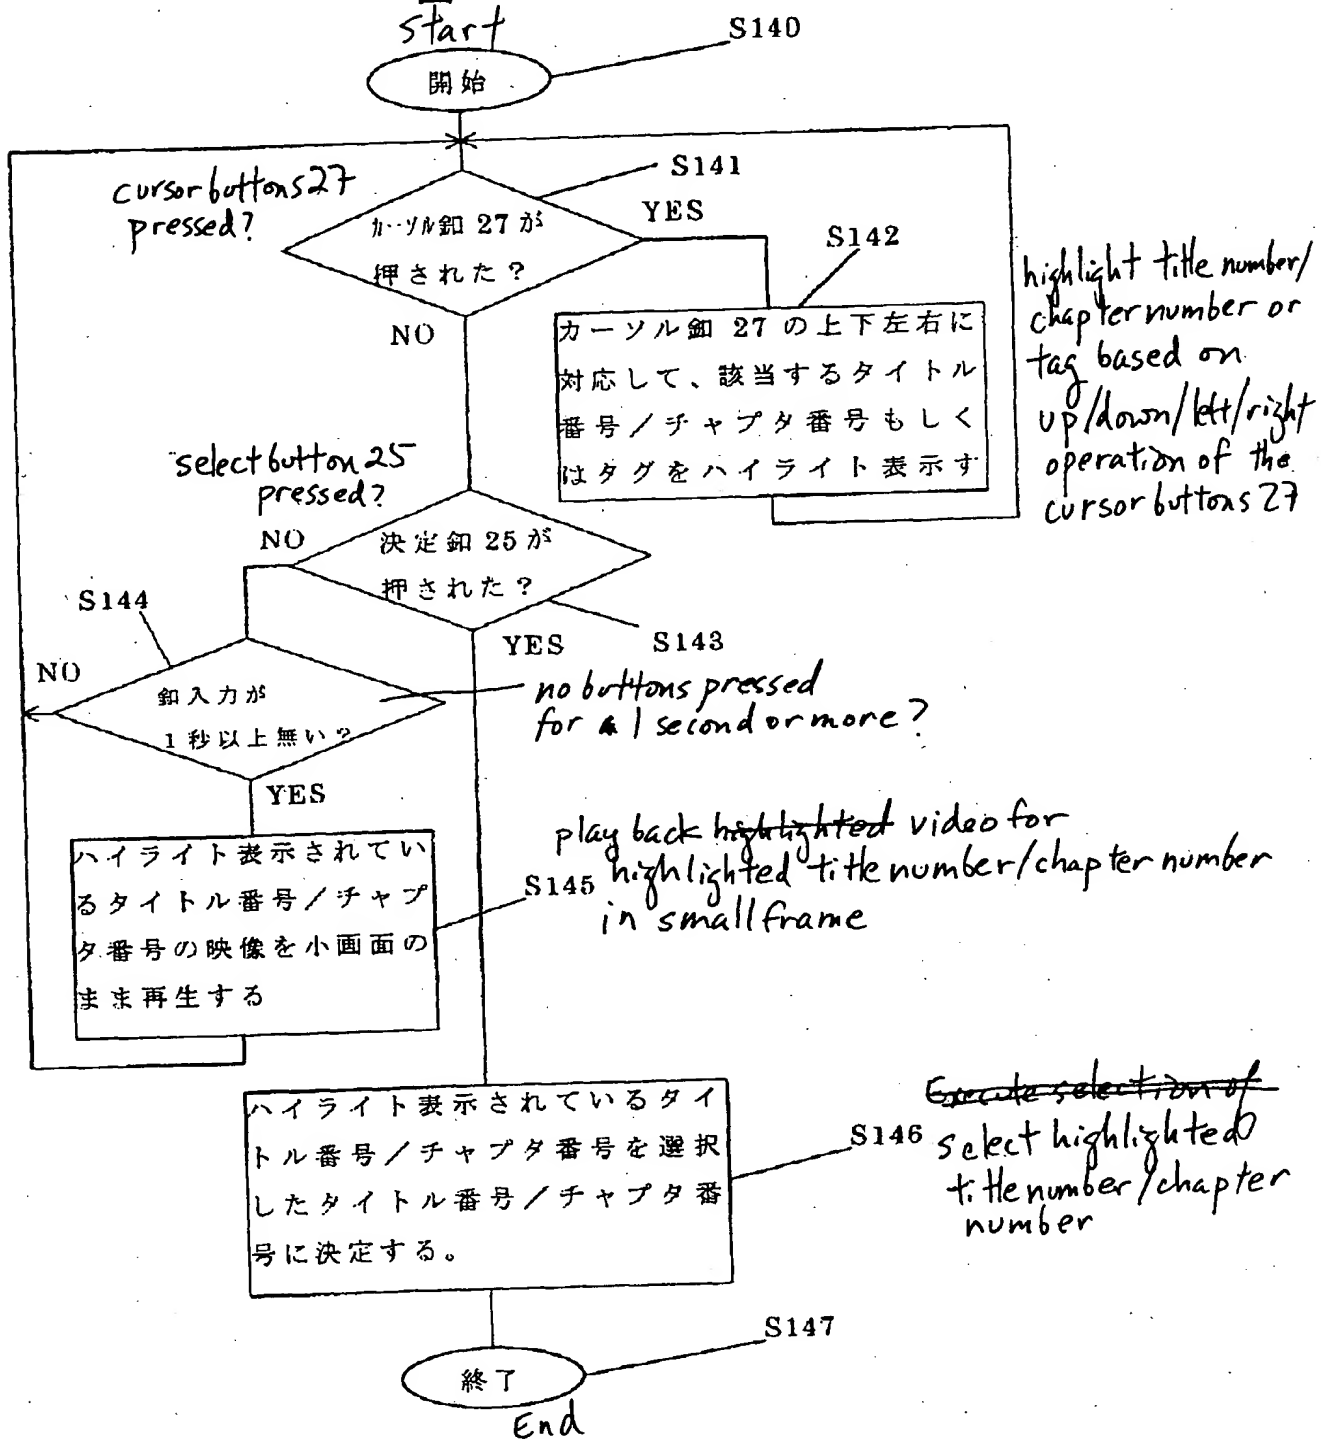 start
S140
開始
cursor buttons 27
pressed?
S141
カーソル釦 27 が
押された？
YES
NO
S142
カーソル釦 27 の上下左右に
対応して、該当するタイトル
番号／チャプタ番号もしく
はタグをハイライト表示す
highlight title number/
chapter number or
tag based on
up/down/left/right
operation of the
cursor buttons 27
select button 25
pressed?
NO
決定釦 25 が
押された？
S143
YES
S144
NO
釦入力が
1 秒以上無い？
no buttons pressed
for 1 second or more?
YES
ハイライト表示されてい
るタイトル番号／チャプ
タ番号の映像を小画面の
まま再生する
S145
play back highlighted video for
highlighted title number/chapter number
in small frame
ハイライト表示されているタイ
トル番号／チャプタ番号を選択
したタイトル番号／チャプタ番
号に決定する。
S146
Execute selection of
select highlighted
title number/chapter
number
S147
終了
End